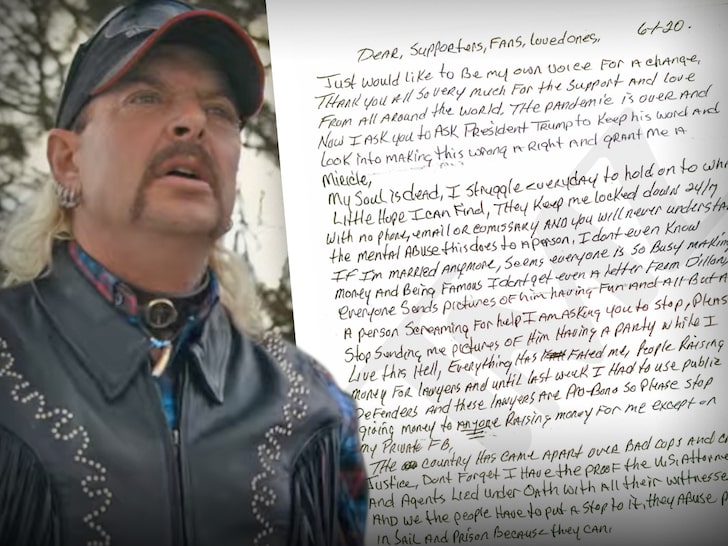 6-1-20.
DEAR, Supporters, FANS, Lovedones,
Just would like to Be my own voice For A change,
Thank you All So very much For the Support And love
From All Around the World, The pandemic is over And
Now I Ask you to Ask President Trump to Keep his word And
Look into making this wrong A Right And grant me A
Miricle,
My Soul is dead, I struggle everyday to hold on to
Little Hope I can Find, They Keep me locked down 24/7
With no phone, email or comissary AND you will never
the mental Abuse this does to A person, I dont even Know
IF Im married Anymore, Seems everyone is So Busy
money And Being Famous I dont get even A letter From
everyone Sends pictures of him having Fun And All But A
A person Screaming For help I Am Asking you to Stop,
Stop Sending me pictures of Him Having A party while I
Live this Hell, Everything Has me, People Raising
Money For lawyers And until last week I Had to use public
Defenders And these lawyers Are Pro-Bono So Please Stop
giving money to Anyone Raising money For me except on
my Private FB,
The country Has came Apart over Bad cops And
Justice, Dont Forget I Have the PROOF the U.S.
And Agents Lied under Oath with All their
AND we the people Have to put A Stop to it, they Abuse
in Jail And Prison Because they can,